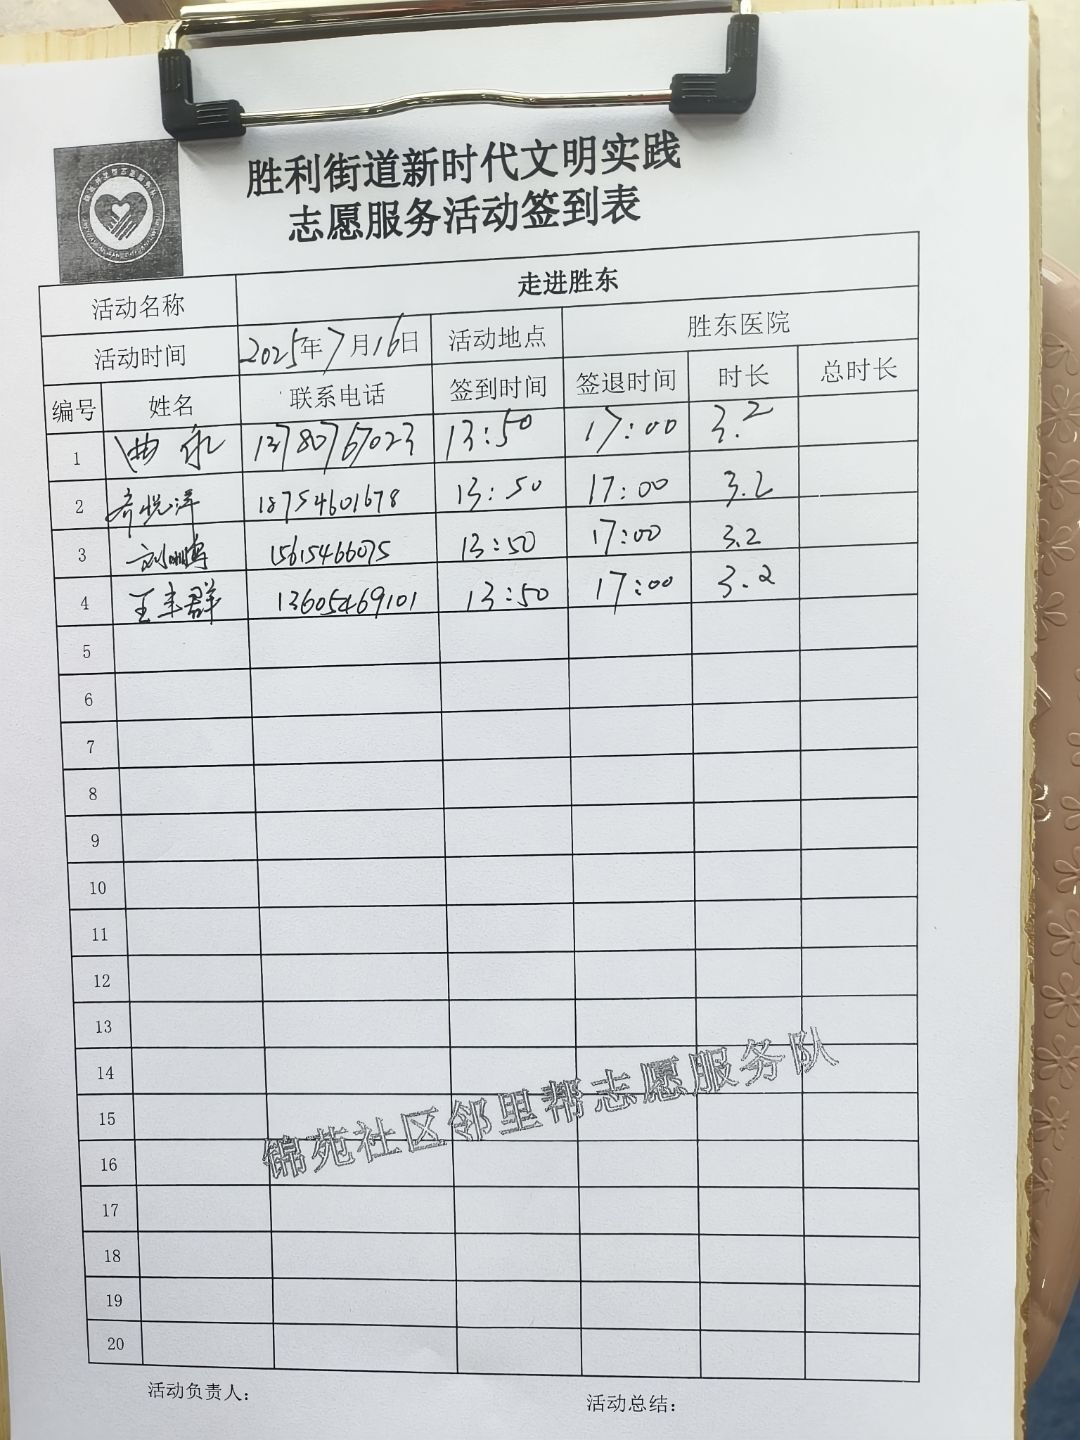 胜利街道新时代文明实践
志愿服务活动签到表
活动名称 走进胜东
活动时间 2025年7月16日 活动地点 胜东医院
编号 姓名 联系电话 签到时间 签退时间 时长 总时长
1 曲永 13780767023 13:50 17:00 3.2
2 齐悦洋 18754601678 13:50 17:00 3.2
3 刘 15615466075 13:50 17:00 3.2
4 王丰群 13605469101 13:50 17:00 3.2
5
6
7
8
9
10
11
12
13
14
15
16
17
18
19
20
锦苑社区邻里帮志愿服务队
活动负责人：
活动总结：